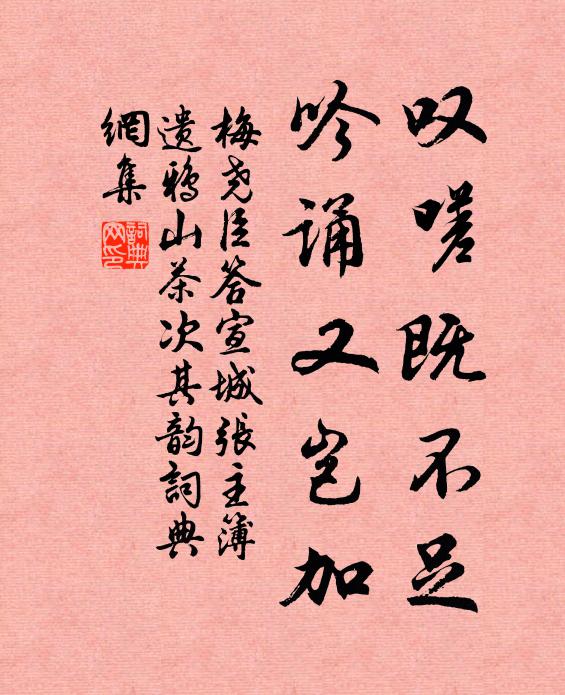 叹嗟既不足
吟诵又岂加
梅尧臣答宣城張主簿
遗鴉山茶次其韵詞典
網集
詞典
网印